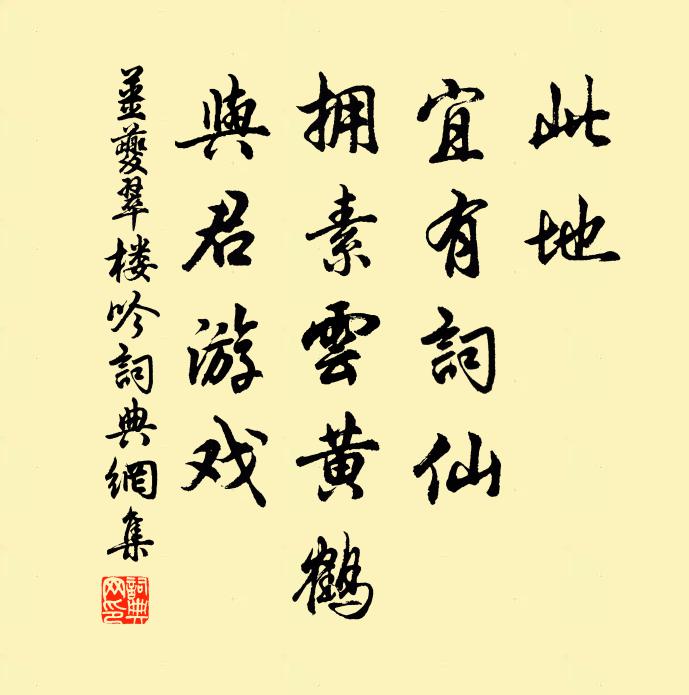 此地
宜有詞仙
拥素雲黄鶴
與君游戏
姜夔翠楼吟詞典網集
詞典網印